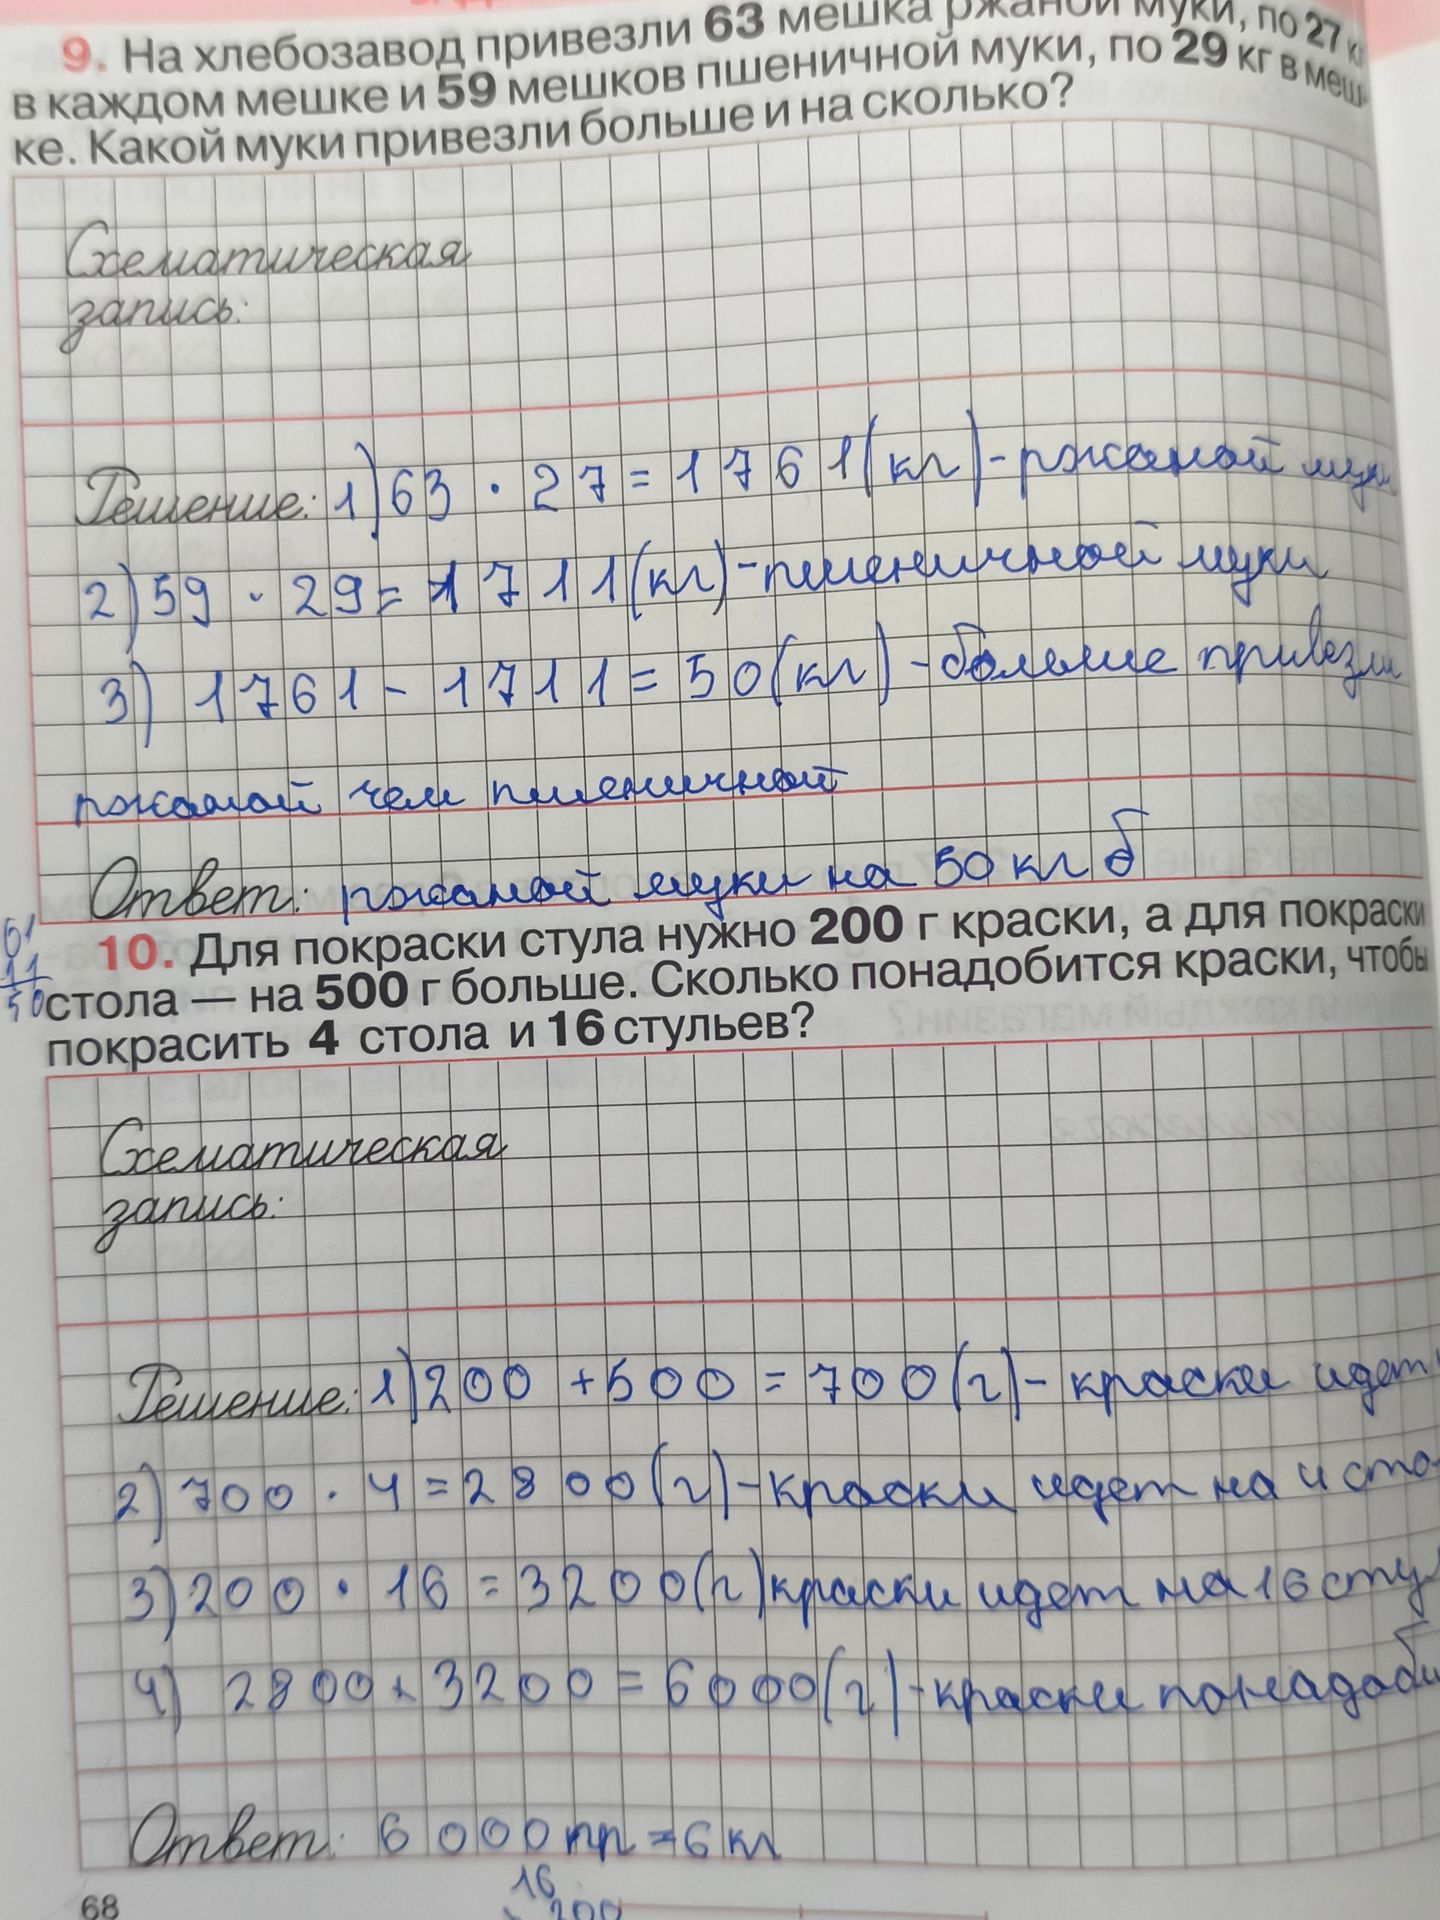 9. На хлебозавод привезли 63 мешка ржаной муки, по 27 кг
в каждом мешке и 59 мешков пшеничной муки, по 29 кг в меш-
ке. Какой муки привезли больше и на сколько?
Схематическая
запись:
Решение: 1) 63 · 27 = 1761 (кг) - ржаной муки
2) 59 · 29 = 1711 (кг) - пшеничной муки
3) 1761 - 1711 = 50 (кг) - больше привезли
ржаной чем пшеничной
Ответ: ржаной муки на 50 кг б
61
11
50
10. Для покраски стула нужно 200 г краски, а для покраски
стола — на 500 г больше. Сколько понадобится краски, чтобы
покрасить 4 стола и 16 стульев?
Схематическая
запись:
Решение: 1) 200 + 500 = 700 (г) - краски идет
2) 700 · 4 = 2800 (г) - краски идет на 4 сто
3) 200 · 16 = 3200 (г) краски идет на 16 стул
4) 2800 + 3200 = 6000 (г) - краски понадоби
Ответ: 6000 гр = 6 кг
16
200
68